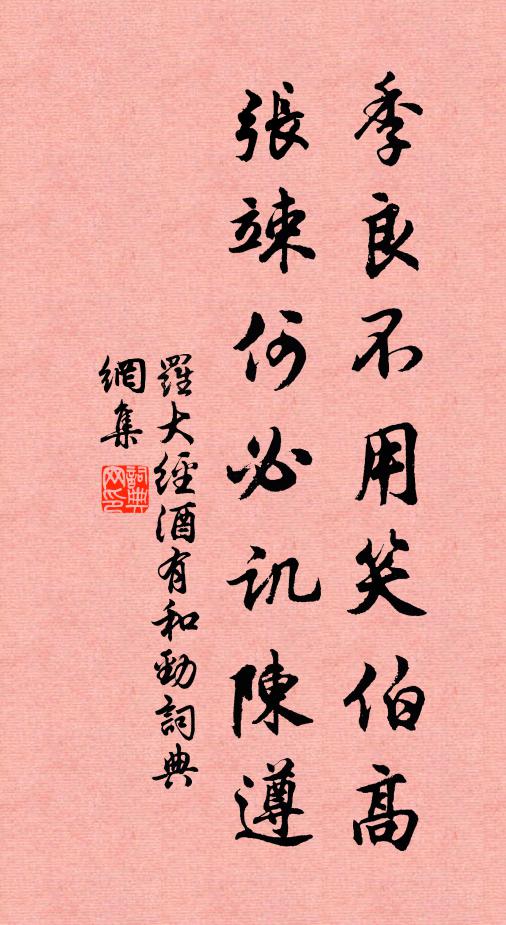 季良不用笑伯高
張竦何必譏陳遵
羅大經酒有和勁詞典
網集
詞典
網印